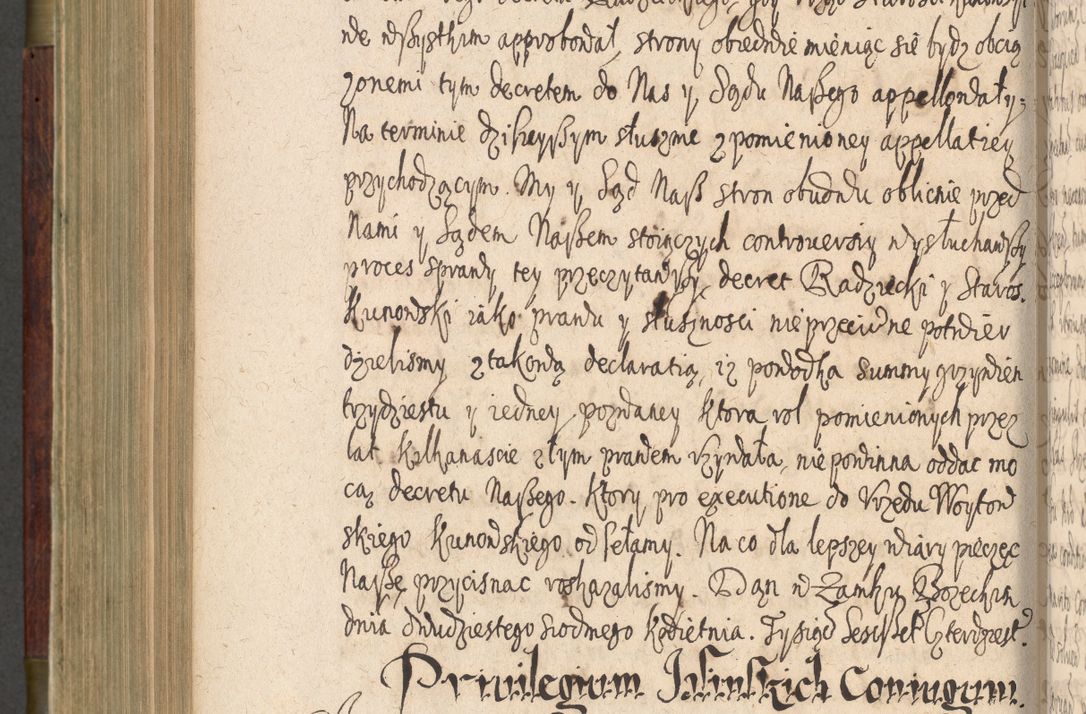 we wszystkim approbował, strony obiedwie mieniąc się bydz obcią
zonemi tym decretem do Nas y Sądu Naszego appellowały.
Na terminie dzisieyszym słusznie z pomienioney appellatiey
przychodzącym. My y Sąd Nasz stron obudwu oblicnie przed
Nami y Sądem Naszem stoiączych controuersiy wysłuchawszy
proces sprawy tey przeczytawszy, decret Radziecki y Staros.
Kunowski iako prawu y słusznosci nie przeciwne potwier
dzielismy z takową declaratią, iz powodka summy grzywien
trzydziestu y iedney pozwaney ktora rol pomienionych przez
lat kilkanascie złym prawem vzywała, nie powinna oddac mo
cą decretu Naszego. Ktory pro executione do Vrzędu Woytow
skiego Kunowskiego odsełamy. Na co dla lepszey wiary pieczęc
Naszę przycisnac roskazalismy. Dan w Zamku Bozechin
dnia dwudziestego siodmego kwietnia. Tysiąc Seszset Czterdziest.
Privilegium Islinskich Coniugum.